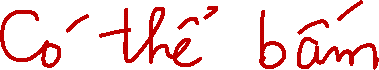 Có thể bấm